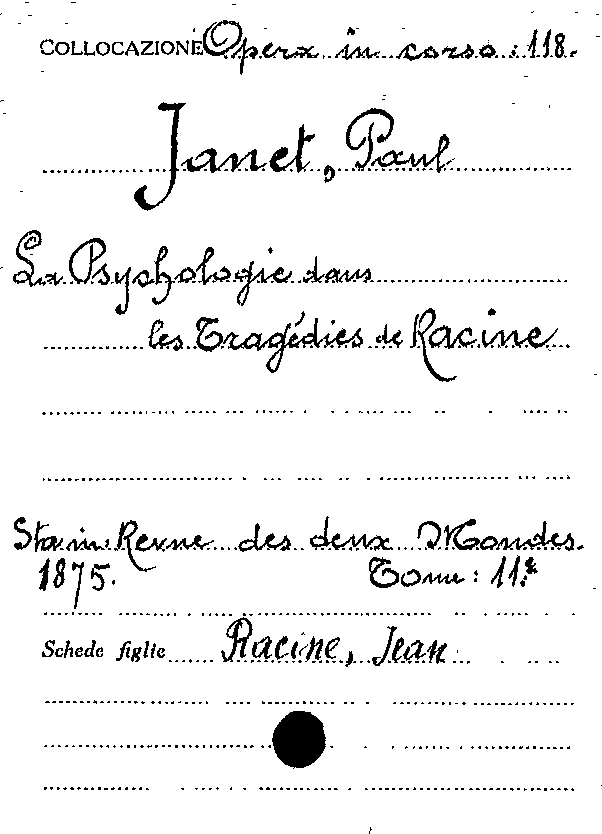 COLLOCAZIONE Opera in corso: 118.
Janet, Paul
La Psychologie dans
les Tragédies de Racine
Sta in: Revue des deux Mondes.
1875. Tome: 11.º
Schede figlie Racine, Jean